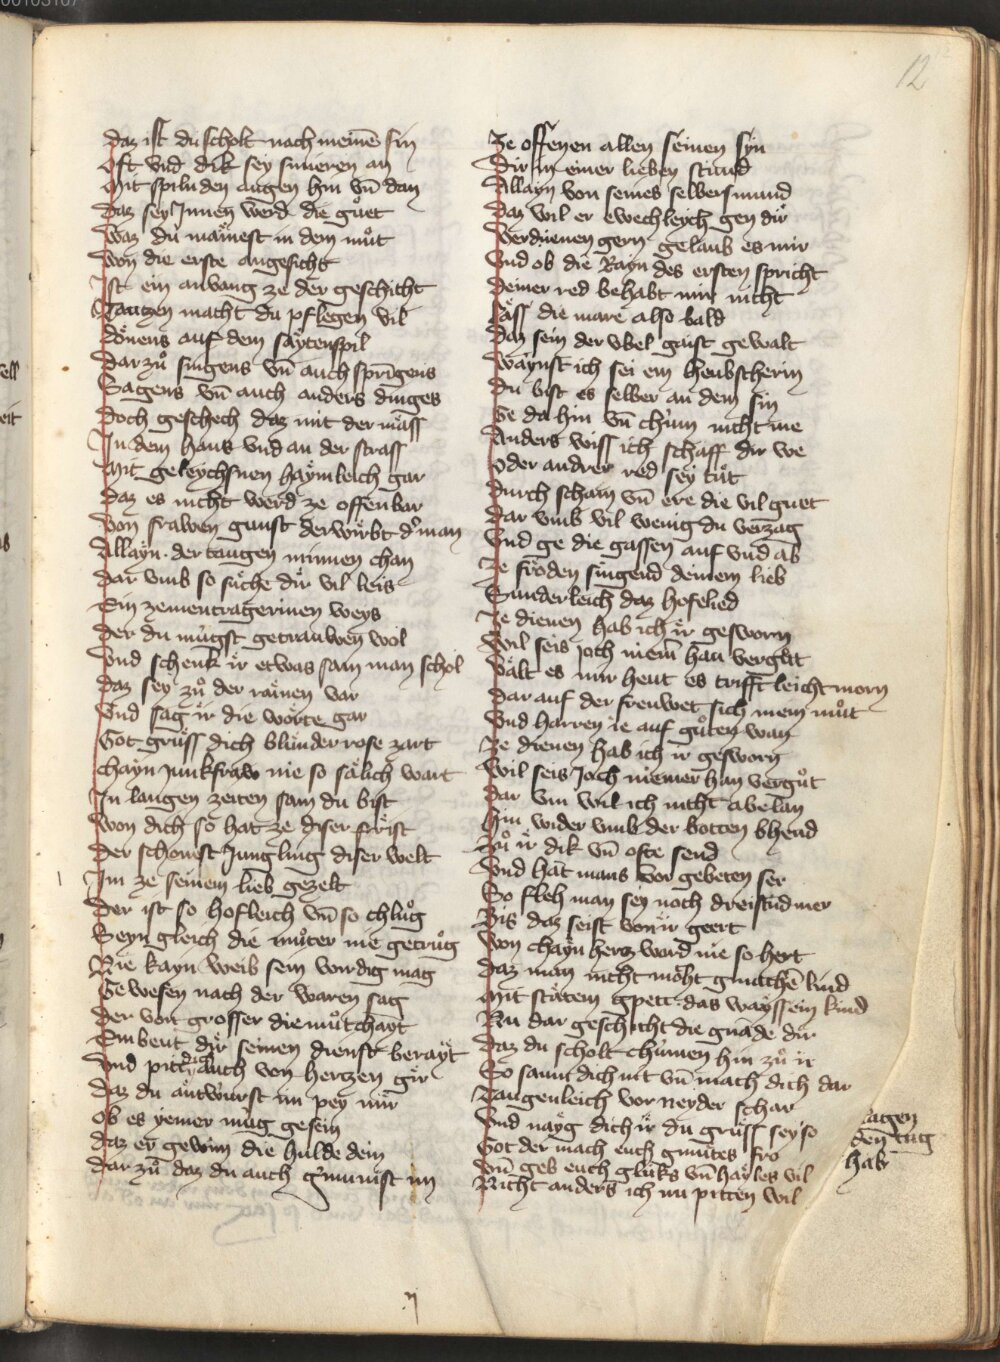 12
daz ist du scholt nach meinē sin
Oft vnd dik sey smieren an
Mit spilnden augen hin vn̄ dan
Daz sey Innen werd die gůet
Waz du mainest in dem můt
Won die erste angesicht
Ist ein anvang ze der geschicht
Tantzen macht du pflegen vil
dönens auf dem saÿtenspil
Darzů singens vn̄ auch springens
Sagens vn̄ auch anders dinges
Doch geschech daz mit der mäss
In dem haus vnd an der strass
Mit geleychsnen haÿmleich gar
daz es nicht werd ze offenbar
Von frawen gunst derwirbt dʳ man
Allaÿn der taugen minnen chan
dar vmb so süche dir vil leis
Ein zementragerinen weys
Der du mügst getrauwen wol
Vnd schenk ir etwas sam man schol
Daz sey zů der rainen var
Vnd sag ir die wörte gar
Got grüss dich blünder rose zart
chayn Junkfraw nie so sälich wart
In langen zeiten sam du bist
Won dich so hat ze diser frist
Der schonist Jungling diser welt
Im ze seinem lieb gezelt
Der ist so hofleich vn̄ so chlůg
Seyn gleich die můter nie getrůg
Nie kayn weib sein virdig mag
Gewesen nach der waren sag
Der von grosser diemůtchayt
Enbeut dir seinen dienst berayt
Vnd pitt dich auch von hertzen gir
Daz du antwurst im pey mir
Ob es yemer müg gesein
Daz er gewinn die hulde dein
Dar zů daz du auch gimnist im
Ze offenen allen seinen syn
Dir in einer lieben stund
Allayn von seines selbers mund
Daz wil er ewechleych gen dir
Verdienen gern gelaub es mir
Vnd ob die Rayn des ersten spricht
Deiner red behabt mir nicht
Läss die märe also bald
Daz sein der vbel gaist gewalt
Wäynst ich sei ein heubscherin
Du bist es selber an dem sin
Ge da hin vn̄ chům nicht me
Anders weiss ich schaff dir we
Oder andrer red sey tůt
Durch scham vn̄ ere die vil guet
Dar vmb vil wenig du verzag
Vnd ge die gassen auf vnd ab
Ze fröden singend deinem lieb
Sunderleich daz hofelied
Ze dienen hab ich ir gesworn
Wil seis joch niem̄ han vergůt
Vält es mir heut es trifft leicht morn
Dar auf der frewet sich mein můt
Vnd harren ie auf gůten wan
Ze dienen hab ich ir gesworn
Wil seis Joch niemer han vergůt
Dar vm wil ich nicht abelan
Hin wider vmb der botten bhend
Zů ir dik vn̄ ofte send
Vnd hat mans vor gebeten ser
So fleh man sey noch dreistud mer
Bis daz seist von ir geert
Won chayn hertz ward nie so hert
Daz man nicht möht gmachē lind
Mit stätem gpett das wayss ein kind
Nu dar geschicht die gnade dir
Daz du scholt chůmen hin zů ir
So saum dich nit vn̄ mach dich dar
Taugenleich vor neyder schar
Vnd nayg dich ir du grüss sey so
Got der mach euch gmůtes fro
Vn̄ geb euch glüks vn̄ hailes vil
Nicht anders ich nu pitten wil